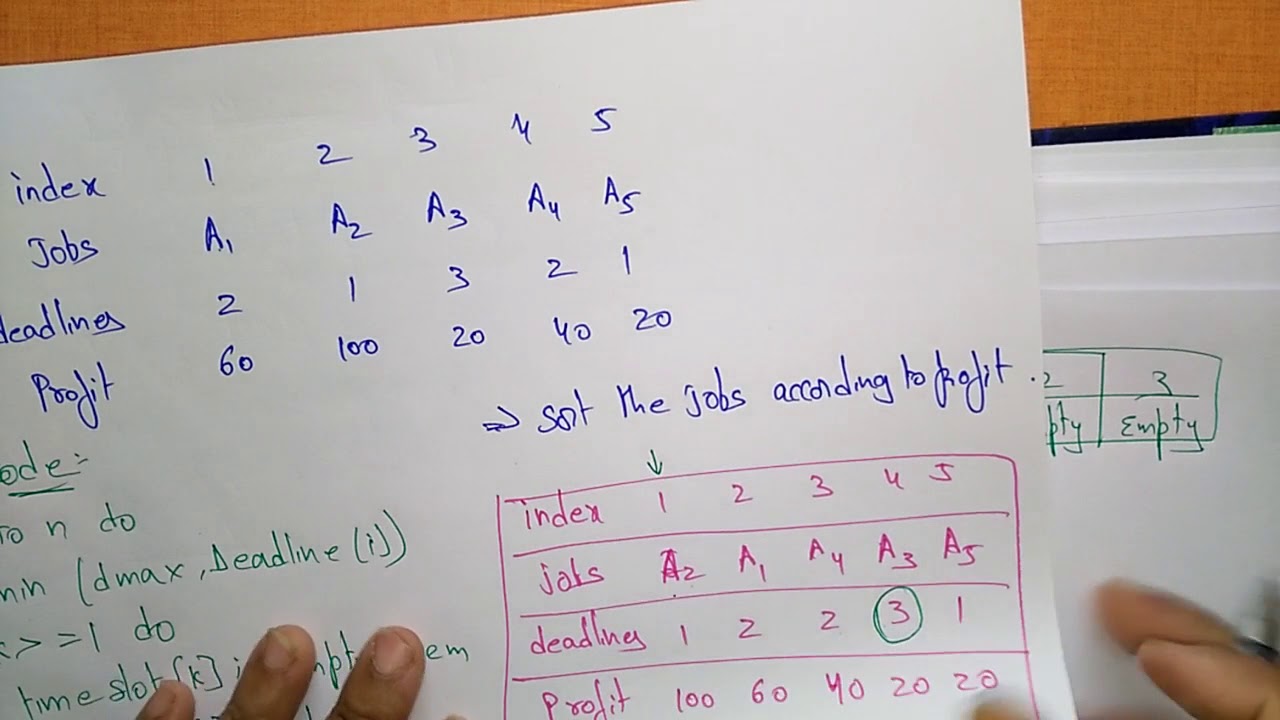 index 1 2 3 4 5
Jobs A1 A2 A3 A4 A5
deadlines 2 1 3 2 1
Profit 60 100 20 40 20
⇒ sort the jobs according to profit.
2 3
pty Empty
ode:-
to n do
min (dmax, Deadline (i))
>=1 do
time slot [k]
em
↓
index 1 2 3 4 5
jobs A2 A1 A4 A3 A5
deadlines 1 2 2 3 1
Profit 100 60 40 20 20